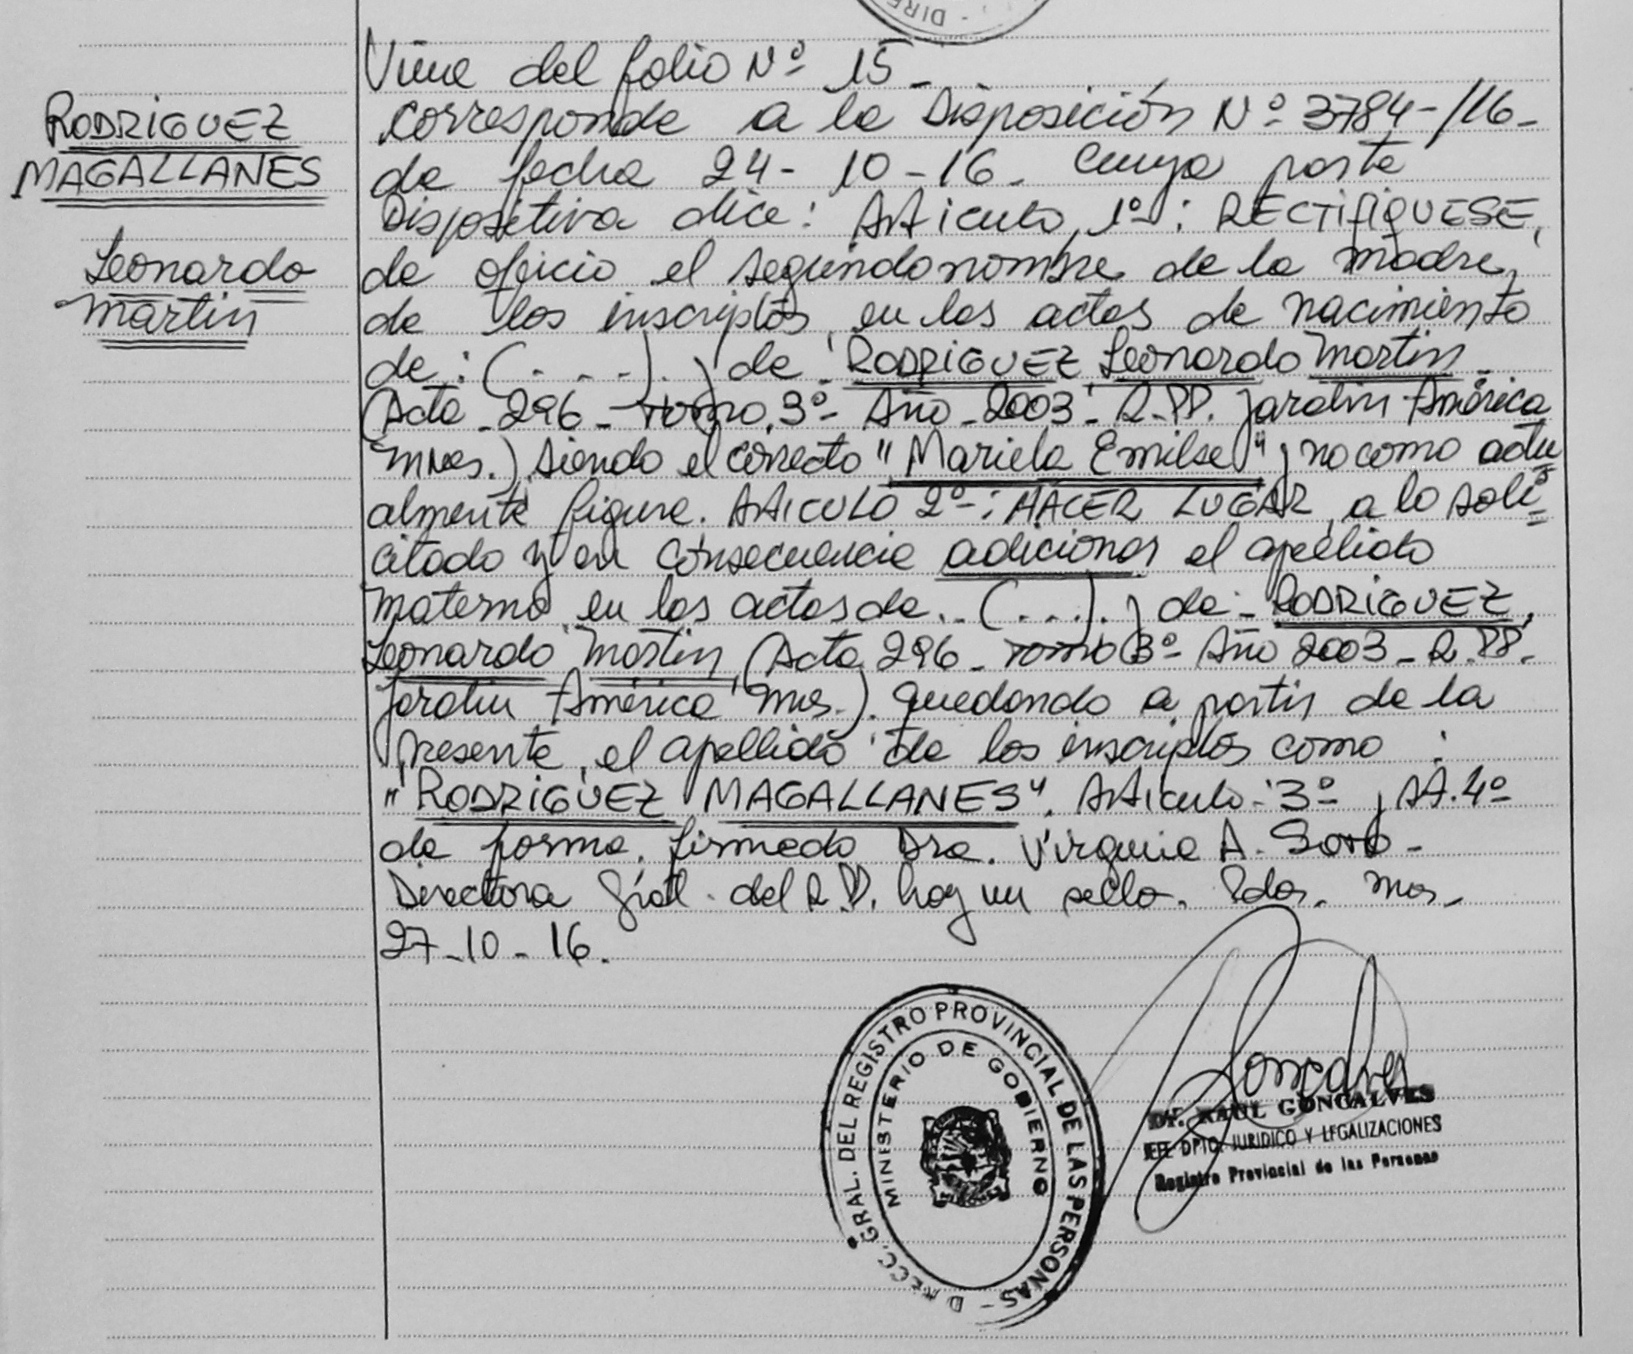 DIRE
Viene del folio Nº 15-
RODRIGUEZ
MAGALLANES
Leonardo
Martin
corresponde a la Disposición Nº 3784-/16-
de fecha 24-10-16. cuya parte
Dispositiva dice: Articulo 1º: RECTIFIQUESE,
de oficio el segundo nombre de la madre,
de los inscriptos, en las actas de nacimiento
de: (. - - -). ) de RODRIGUEZ Leonardo Martin -
(Acta-296-tomo.3º-Año-2003-R.PP. Jardin América
Mnes.) siendo el correcto "Mariela Emilse", no como actu
almente figura. ARTICULO 2º-: HACER LUGAR, a lo soli-
citado y en consecuencia adicionar el apellido
materno en las actas de.. (. . . .). ) de- RODRIGUEZ,
Leonardo Martin, (Acta 296-tomo 3º-Año 2003-R.PP.
Jardin América Mnes.). quedando a partir de la
presente, el apellido de los inscriptos como :
"RODRIGUEZ MAGALLANES". Articulo-3º, Art.4º
de forma. firmado Dra. Virginia A. Soto-
Directora Gral. del R.P. hay un sello. Pdas. Mnes-
27-10-16.
DIRECC. GRAL. DEL REGISTRO PROVINCIAL DE LAS PERSONAS-
MINISTERIO DE GOBIERNO
Dr. RAUL GONCALVES
JEFE DPTO. JURIDICO Y LEGALIZACIONES
Registro Provincial de las Personas